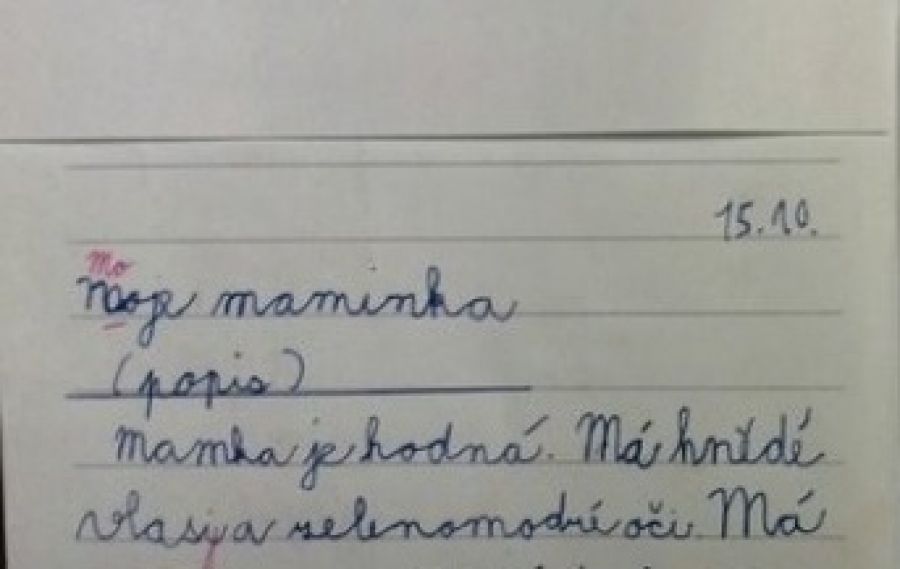 15.10.
Mo
Moje maminka
(popis)
Mamka je hodná. Má hnědé
vlasy a zelenomodré oči. Má